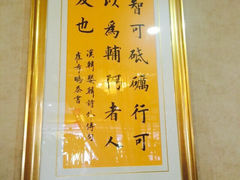 智可砥礪行可
以為輔弼者人
友也
漢韓嬰韓詩外傳句
鵬恭書